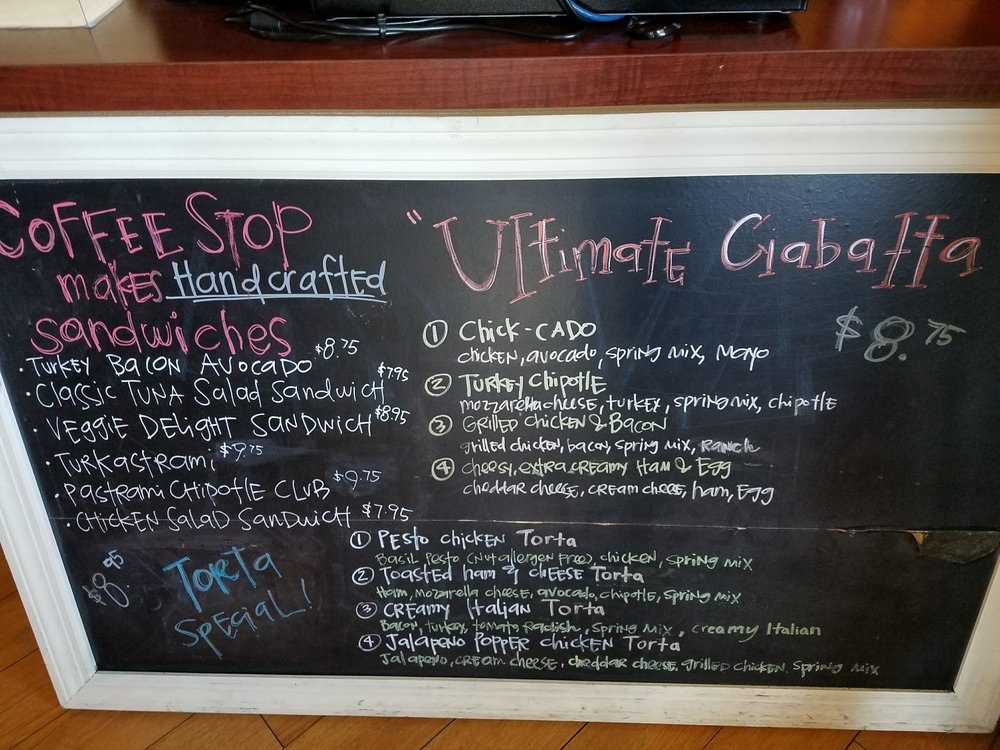 COFFEE STOP
makes Handcrafted
sandwiches
· TURKEY BACON AVOCADO $8.75
· CLASSIC TUNA Salad SANDWICH $7.95
· VEGGIE DELIGHT SANDWICH $8.95
· TURKASTRAMI $9.75
· PASTRAMI CHIPOTLE CLUB $9.75
· CHICKEN SALAD SANDWICH $7.95
$8.95
TORTA
SPECIAL!
"Ultimate Ciabatta
$8.75
① Chick-CADO
chicken, avocado, spring mix, Mayo
② TURKEY Chipotle
mozzarella cheese, turkey, spring mix, chipotle
③ GRILLED chicken & BACON
grilled chicken, bacon, spring mix, Ranch
④ cheesy, extra creamy Ham & Egg
cheddar cheese, cream cheese, ham, Egg
① PESTO chicken Torta
Basil Pesto (Nut allergen Free), chicken, spring mix
② Toasted ham & cheese Torta
Ham, mozarella cheese, avocado, chipotle, spring mix
③ CREAMY Italian Torta
Bacon, turkey, tomato Radish, spring mix, creamy Italian
④ Jalapeno POPPER chicken Torta
Jalapeno, cream cheese, cheddar cheese, grilled chicken, spring mix